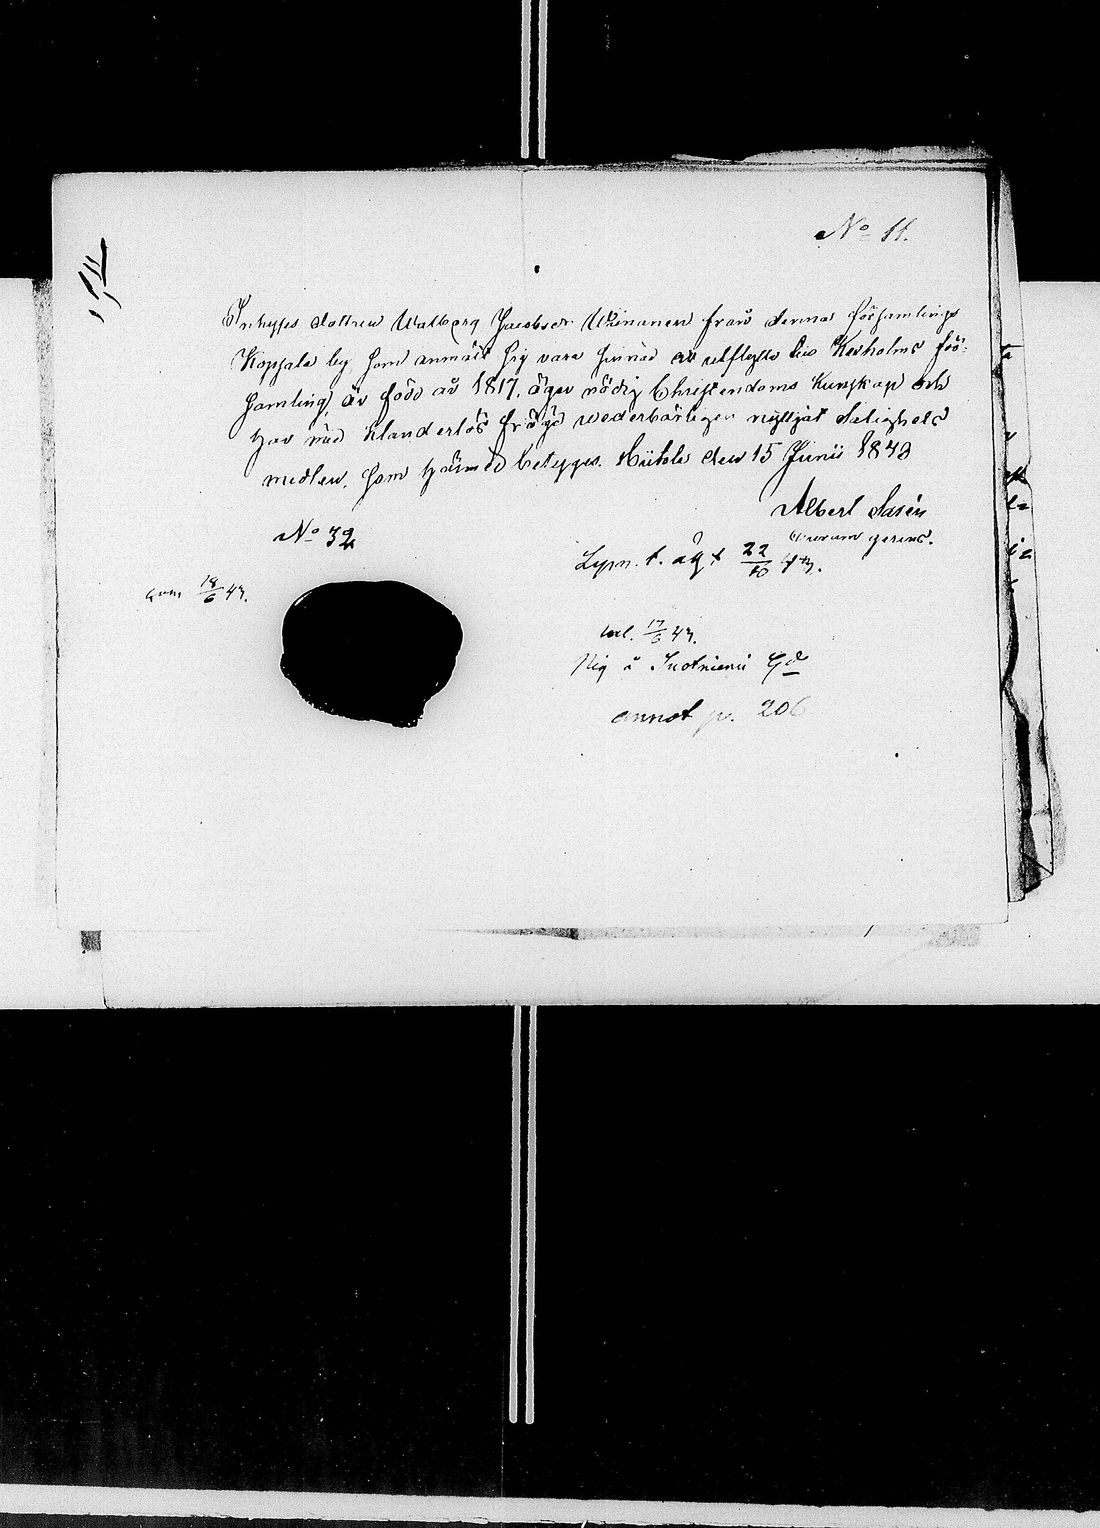 No 11.
Inhyses dottren Walborg Jacobsdr Ukinanen från denna församlings
Kopsala by, som anmält sig vara sinnad att utflytta till Kexholms för-
samling, är född år 1817, äger nödig Christendoms kunskap och
har med klanderlös frägd wederbörligen nyttjat Salighets
medlen, som härmed betygges. Hiitola den 15 Junii 1843
Albert Sarén
Curam gerens.
No 32
Lysn. t. äg t 22/10 43.
qvm 18/6 43.
17/6 43.
Pig å Suotniemi Gd
annot p. 206